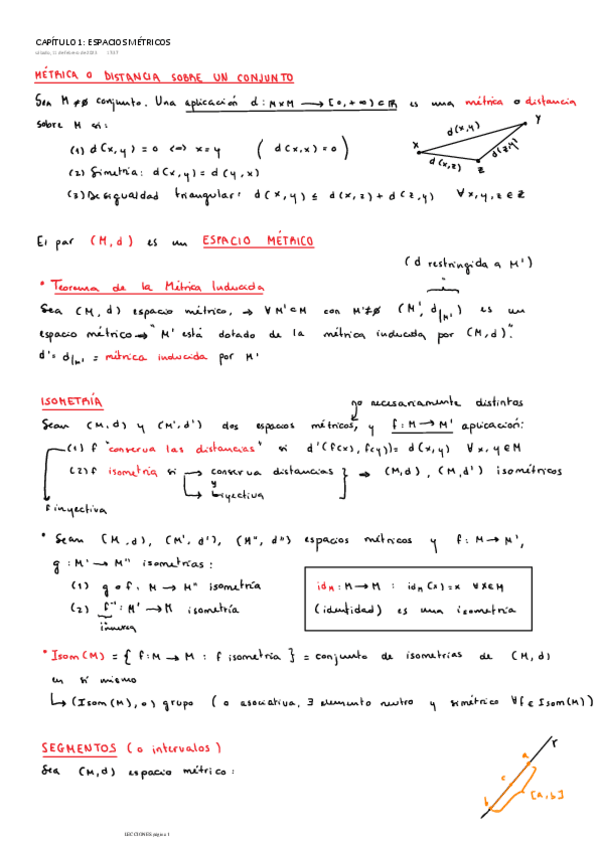 CAPÍTULO 1: ESPACIOS MÉTRICOS
MÉTRICA O DISTANCIA SOBRE UN CONJUNTO
Sea M≠∅ conjunto. Una aplicación d: M×M → [0,+∞) ⊂ ℝ es una métrica o distancia
sobre M si:
(1) d(x,y) = 0 ⇔ x=y ( d(x,x) = 0 )
(2) Simetría: d(x,y) = d(y,x)
(3) Desigualdad triangular: d(x,y) ≤ d(x,z) + d(z,y) ∀x,y,z ∈ Z
x y z d(x,y) d(x,z) d(z,y)
El par (M,d) es un ESPACIO MÉTRICO
(d restringida a M')
* Teorema de la Métrica Inducida
Sea (M,d) espacio métrico, → ∀M'⊂M con M'≠∅ (M', d|M') es un
espacio métrico → "M' está dotado de la métrica inducida por (M,d)".
d' = d|M' = métrica inducida por M'
ISOMETRÍA
no necesariamente distintos
Sean (M,d) y (M',d') dos espacios métricos, y f: M → M' aplicación:
(1) f "conserva las distancias" si d'(f(x), f(y)) = d(x,y) ∀x,y∈M
(2) f isometría si → conserva distancias
y
→ biyectiva
⇒ (M,d), (M',d') isométricos
f inyectiva
* Sean (M,d), (M',d'), (M'',d'') espacios métricos y f: M → M',
g: M' → M'' isometrías:
(1) g∘f: M → M'' isometría
(2) f⁻¹: M' → M isometría
inversa
idM: M → M : idM(x)=x ∀x∈M
(identidad) es una isometría
* Isom(M) = { f: M → M : f isometría } = conjunto de isometrías de (M,d)
en sí mismo
↳ (Isom(M), ∘) grupo (∘ asociativa, ∃ elemento neutro y simétrico ∀f∈Isom(M))
SEGMENTOS (o intervalos)
Sea (M,d) espacio métrico:
r a c b [a,b]
SECCIONES página 1